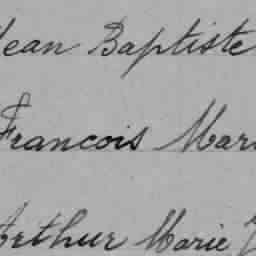 Jean Baptiste
Francois Mari
Arthur Marie